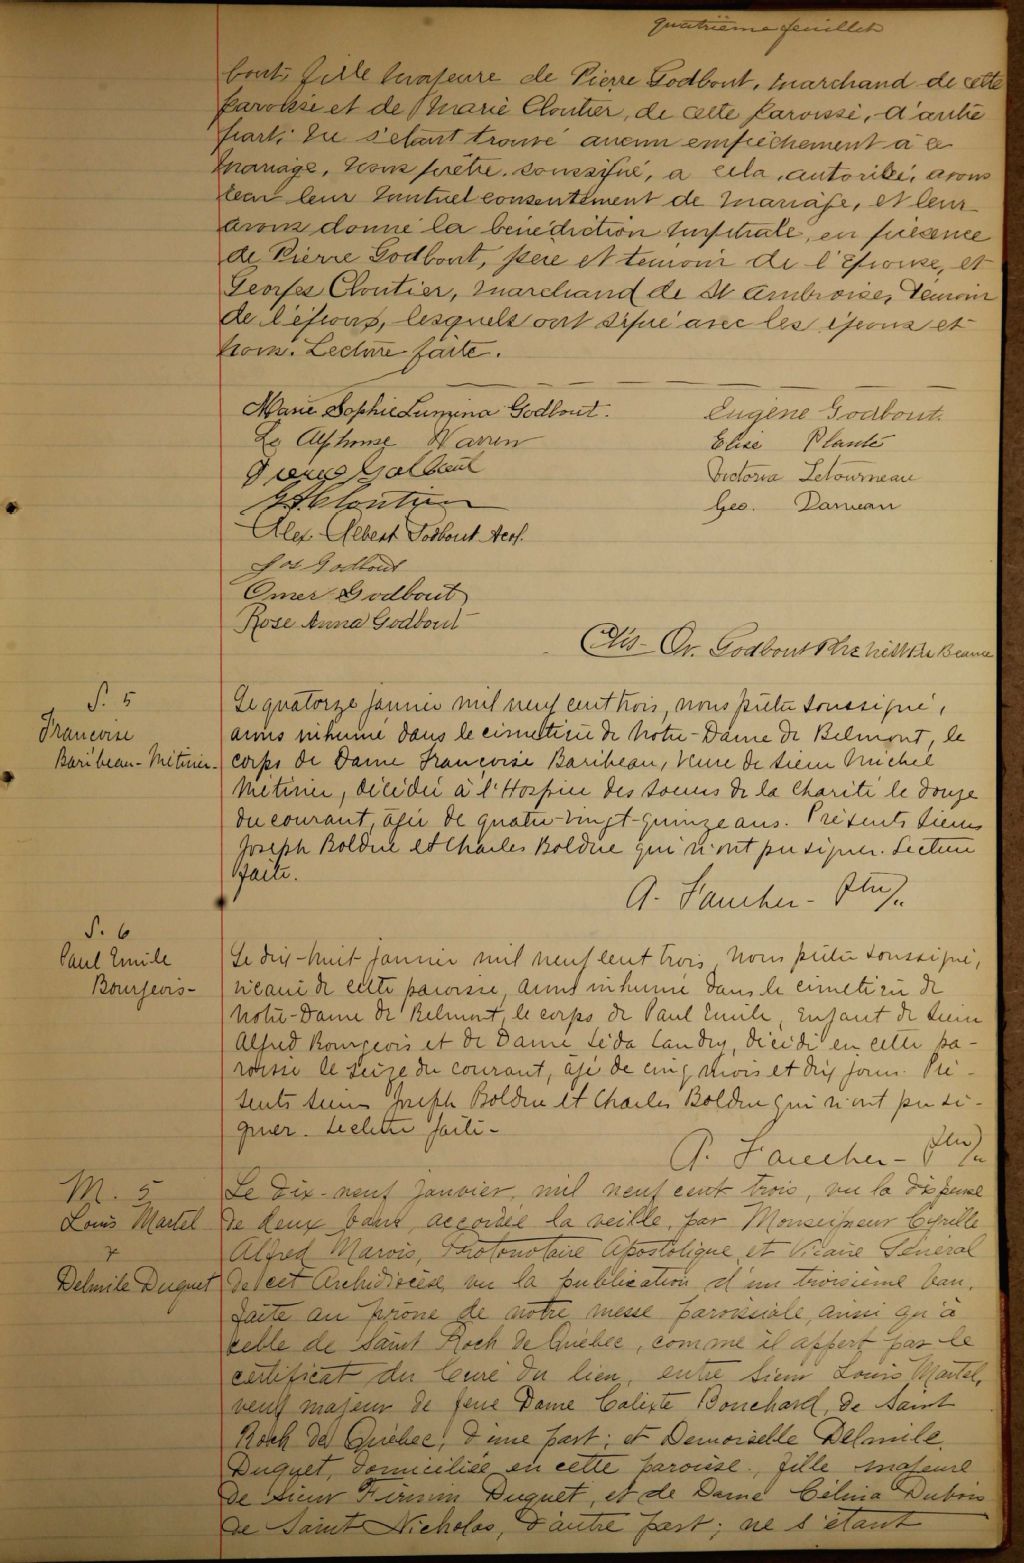 quatrième feuillet
bout, fille majeure de Pierre Godbout, marchand de cette
paroisse et de Marie Cloutier, de cette paroisse, d'autre
part; ne s'étant trouvé aucun empêchement à ce
mariage, nous prêtre soussigné, a cela autorisé, avons
leur mutuel consentement de mariage, et leur
avons donné la bénédiction nuptiale, en présence
de Pierre Godbout, père et témoin de l'épouse, et
Georges Cloutier, marchand de St Ambroise, témoin
de l'époux, lesquels ont signé avec les époux et
nous. Lecture faite.
Marie Sophie Lumina Godbout.
Eugène Godbout.
Alphonse Warren
Elise Plante
Pierre Godbout
Victoria Letourneau
Cloutier
Geo. Daneau
Alex Albert Godbout
Jos Godbout
Omer Godbout
Rose Anna Godbout
Ov. Godbout Ptre Beauce
S. 5
Francoise
Baribeau-Métivier
Le quatorze janvier mil neuf cent trois, nous prêtre soussigné,
avons inhumé dans le cimetière de Notre-Dame de Belmont, le
corps de Dame Françoise Baribeau, veuve de Sieur Michel
Métivier, décédée à l'Hospice des Soeurs de la Charité le douze
du courant, âgée de quatre-vingt-quinze ans. Présents Sieurs
Joseph Bolduc et Charles Bolduc qui n'ont pu signer. Lecture
faite.
A. Faucher - Ptre
S. 6
Paul Emile
Bourgeois-
Le dix-huit janvier mil neuf cent trois, nous prêtre soussigné,
vicaire de cette paroisse, avons inhumé dans le cimetière de
Notre-Dame de Belmont, le corps de Paul Emile, enfant de Sieur
Alfred Bourgeois et de Dame Léda Landry, décédé en cette pa-
roisse le seize du courant, âgé de cinq mois et dix jours. Pré-
sents Sieurs Joseph Bolduc et Charles Bolduc qui n'ont pu si-
gner. Lecture faite-
A. Faucher - Ptre
M. 5
Louis Martel
&
Delmile Duquet
Le dix-neuf janvier, mil neuf cent trois, vu la dispense
de deux bans accordée la veille, par Monseigneur Cyrille
Alfred Marois, Protonotaire Apostolique et Vicaire Général
de cet Archidiocèse, vu la publication d'un troisième ban,
faite au prône de notre messe paroissiale, ainsi qu'à
celle de Saint Roch de Québec, comme il appert par le
certificat du Curé du lieu, entre Sieur Louis Martel,
veuf majeur de feue Dame Calixte Bouchard, de Saint
Roch de Québec, d'une part; et Demoiselle Delmile
Duquet, domiciliée en cette paroisse, fille majeure
de Sieur Firmin Duquet, et de Dame Célina Dubois
de Saint Nicholas, d'autre part; ne s'étant